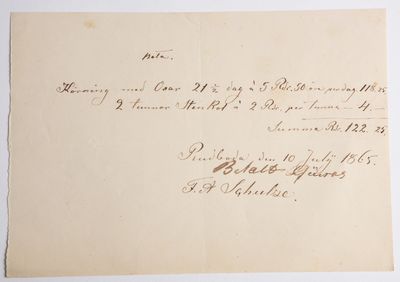 Nota.
Körning med Oxar 21 ½ dag à 5 Rdr. 50 öre pr dag 118.25
2 tunnor Stenkol à 2 Rdr. per tunna – 4.–
Summa Rdr. 122. 25.
den 10 July 1865.
Betalt
F. A. Schultze.